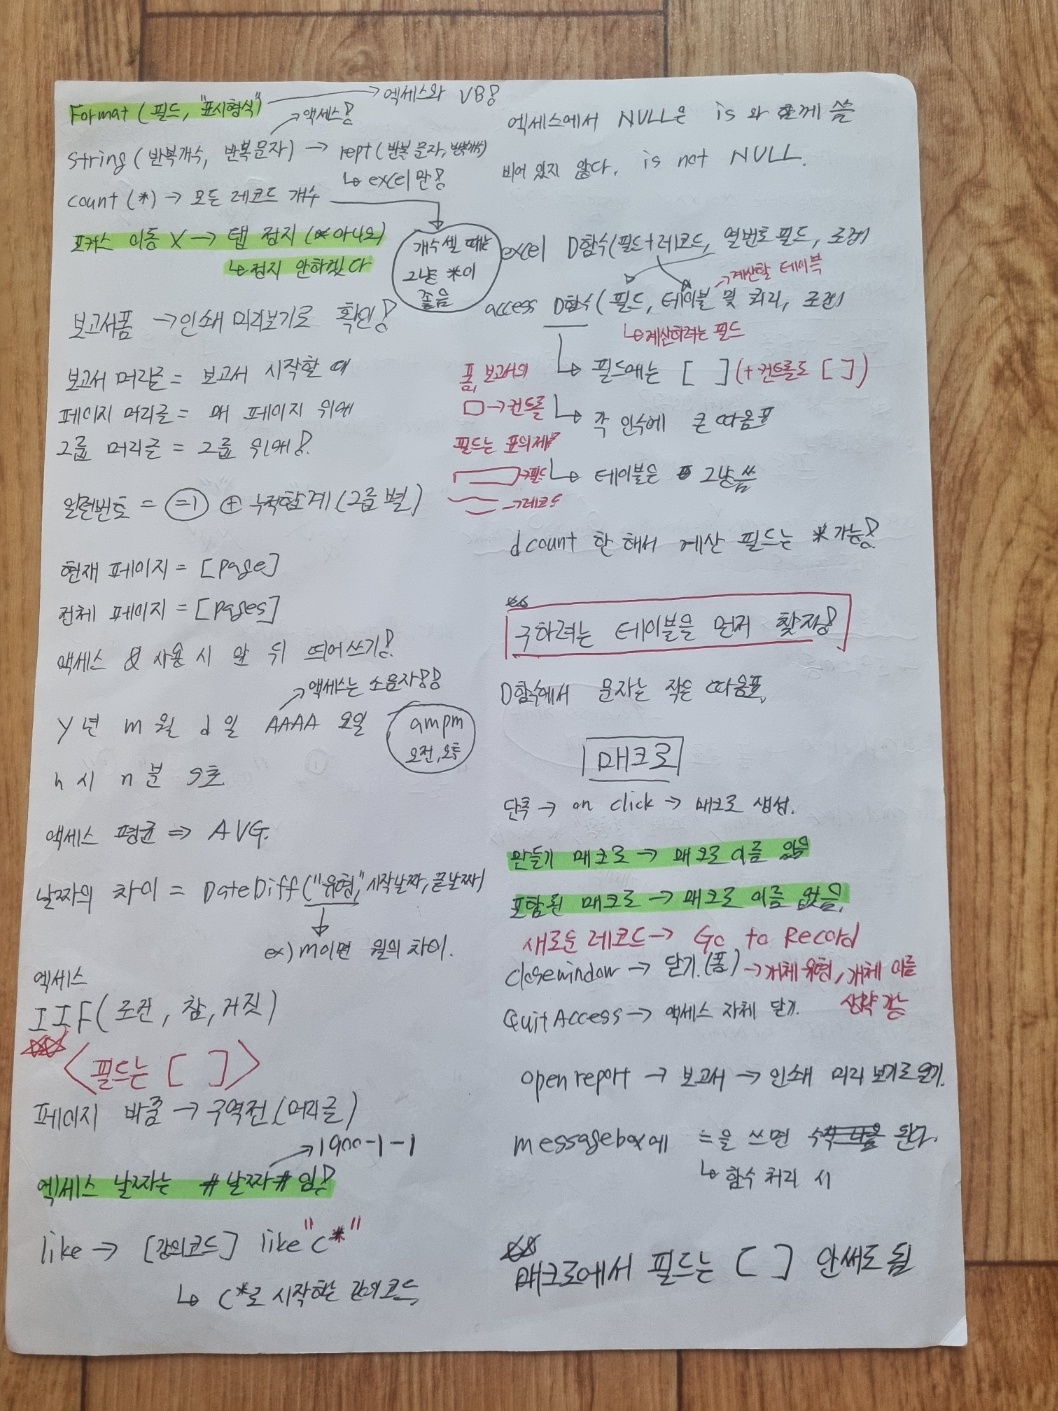 Format (필드, "표시형식") → 엑세스와 VB용
→ 액세스용
string (반복개수, 반복문자) → rept (반복 문자, 반복개수)
↳ excel 만용
count (*) → 모든 레코드 개수
개수셀 때는
그냥 *이
좋음
포커스 이동 X → 탭 정지 (아니오)
↳ 정지 안하겠다
보고서폼 → 인쇄 미리보기로 확인!
보고서 머리글 = 보고서 시작할 때
페이지 머리글 = 매 페이지 위에
그룹 머리글 = 그룹 위에!
일련번호 = =1 + 누적합계 (그룹 별)
현재 페이지 = [page]
전체 페이지 = [pages]
액세스 & 사용 시 앞 뒤 띄어쓰기!
→ 액세스는 소문자!!
y 년 m 월 d 일 AAAA 요일
ampm
오전, 오후
h 시 n 분 s초
액세스 평균 ⇒ AVG.
날짜의 차이 = DateDiff("유형", 시작날짜, 끝날짜)
ex) m이면 월의 차이.
엑세스
IIF(조건, 참, 거짓)
<필드는 [ ]>
페이지 바꿈 → 구역전 (머리글)
→ 1900-1-1
엑세스 날짜는 #날짜# 임!
like → [강의코드] like "C*"
↳ C*로 시작하는 강의코드
엑세스에서 NULL은 is 와 함께 씀
비어 있지 않다. is not NULL.
excel D함수(필드+레코드, 열번호 필드, 조건)
→ 계산할 테이블
access D함수(필드, 테이블 및 쿼리, 조건)
↳ 계산하려는 필드
↳ 필드에는 [ ] (+ 컨트롤도 [ ])
폼, 보고서의
□ → 컨트롤
↳ 각 인수에 큰 따옴표
필드는 표의제목
→ 필드
↳ 테이블은 그냥 씀
→ 레코드
dcount 한 해서 계산 필드는 *가능!
구하려는 테이블을 먼저 찾자!
D함수에서 문자는 작은 따옴표.
매크로
단추 → on click → 매크로 생성.
만들기 매크로 → 매크로 이름 있음
포함된 매크로 → 매크로 이름 없음.
새로운 레코드 → Go to Record
closewindow → 닫기. (폼) → 개체 유형, 개체 이름
생략 가능
QuitAccess → 액세스 자체 닫기.
open report → 보고서 → 인쇄 미리 보기로 열기.
messagebox에 =을 쓰면 된다.
↳ 함수 처리 시
매크로에서 필드는 [ ] 안써도 됨